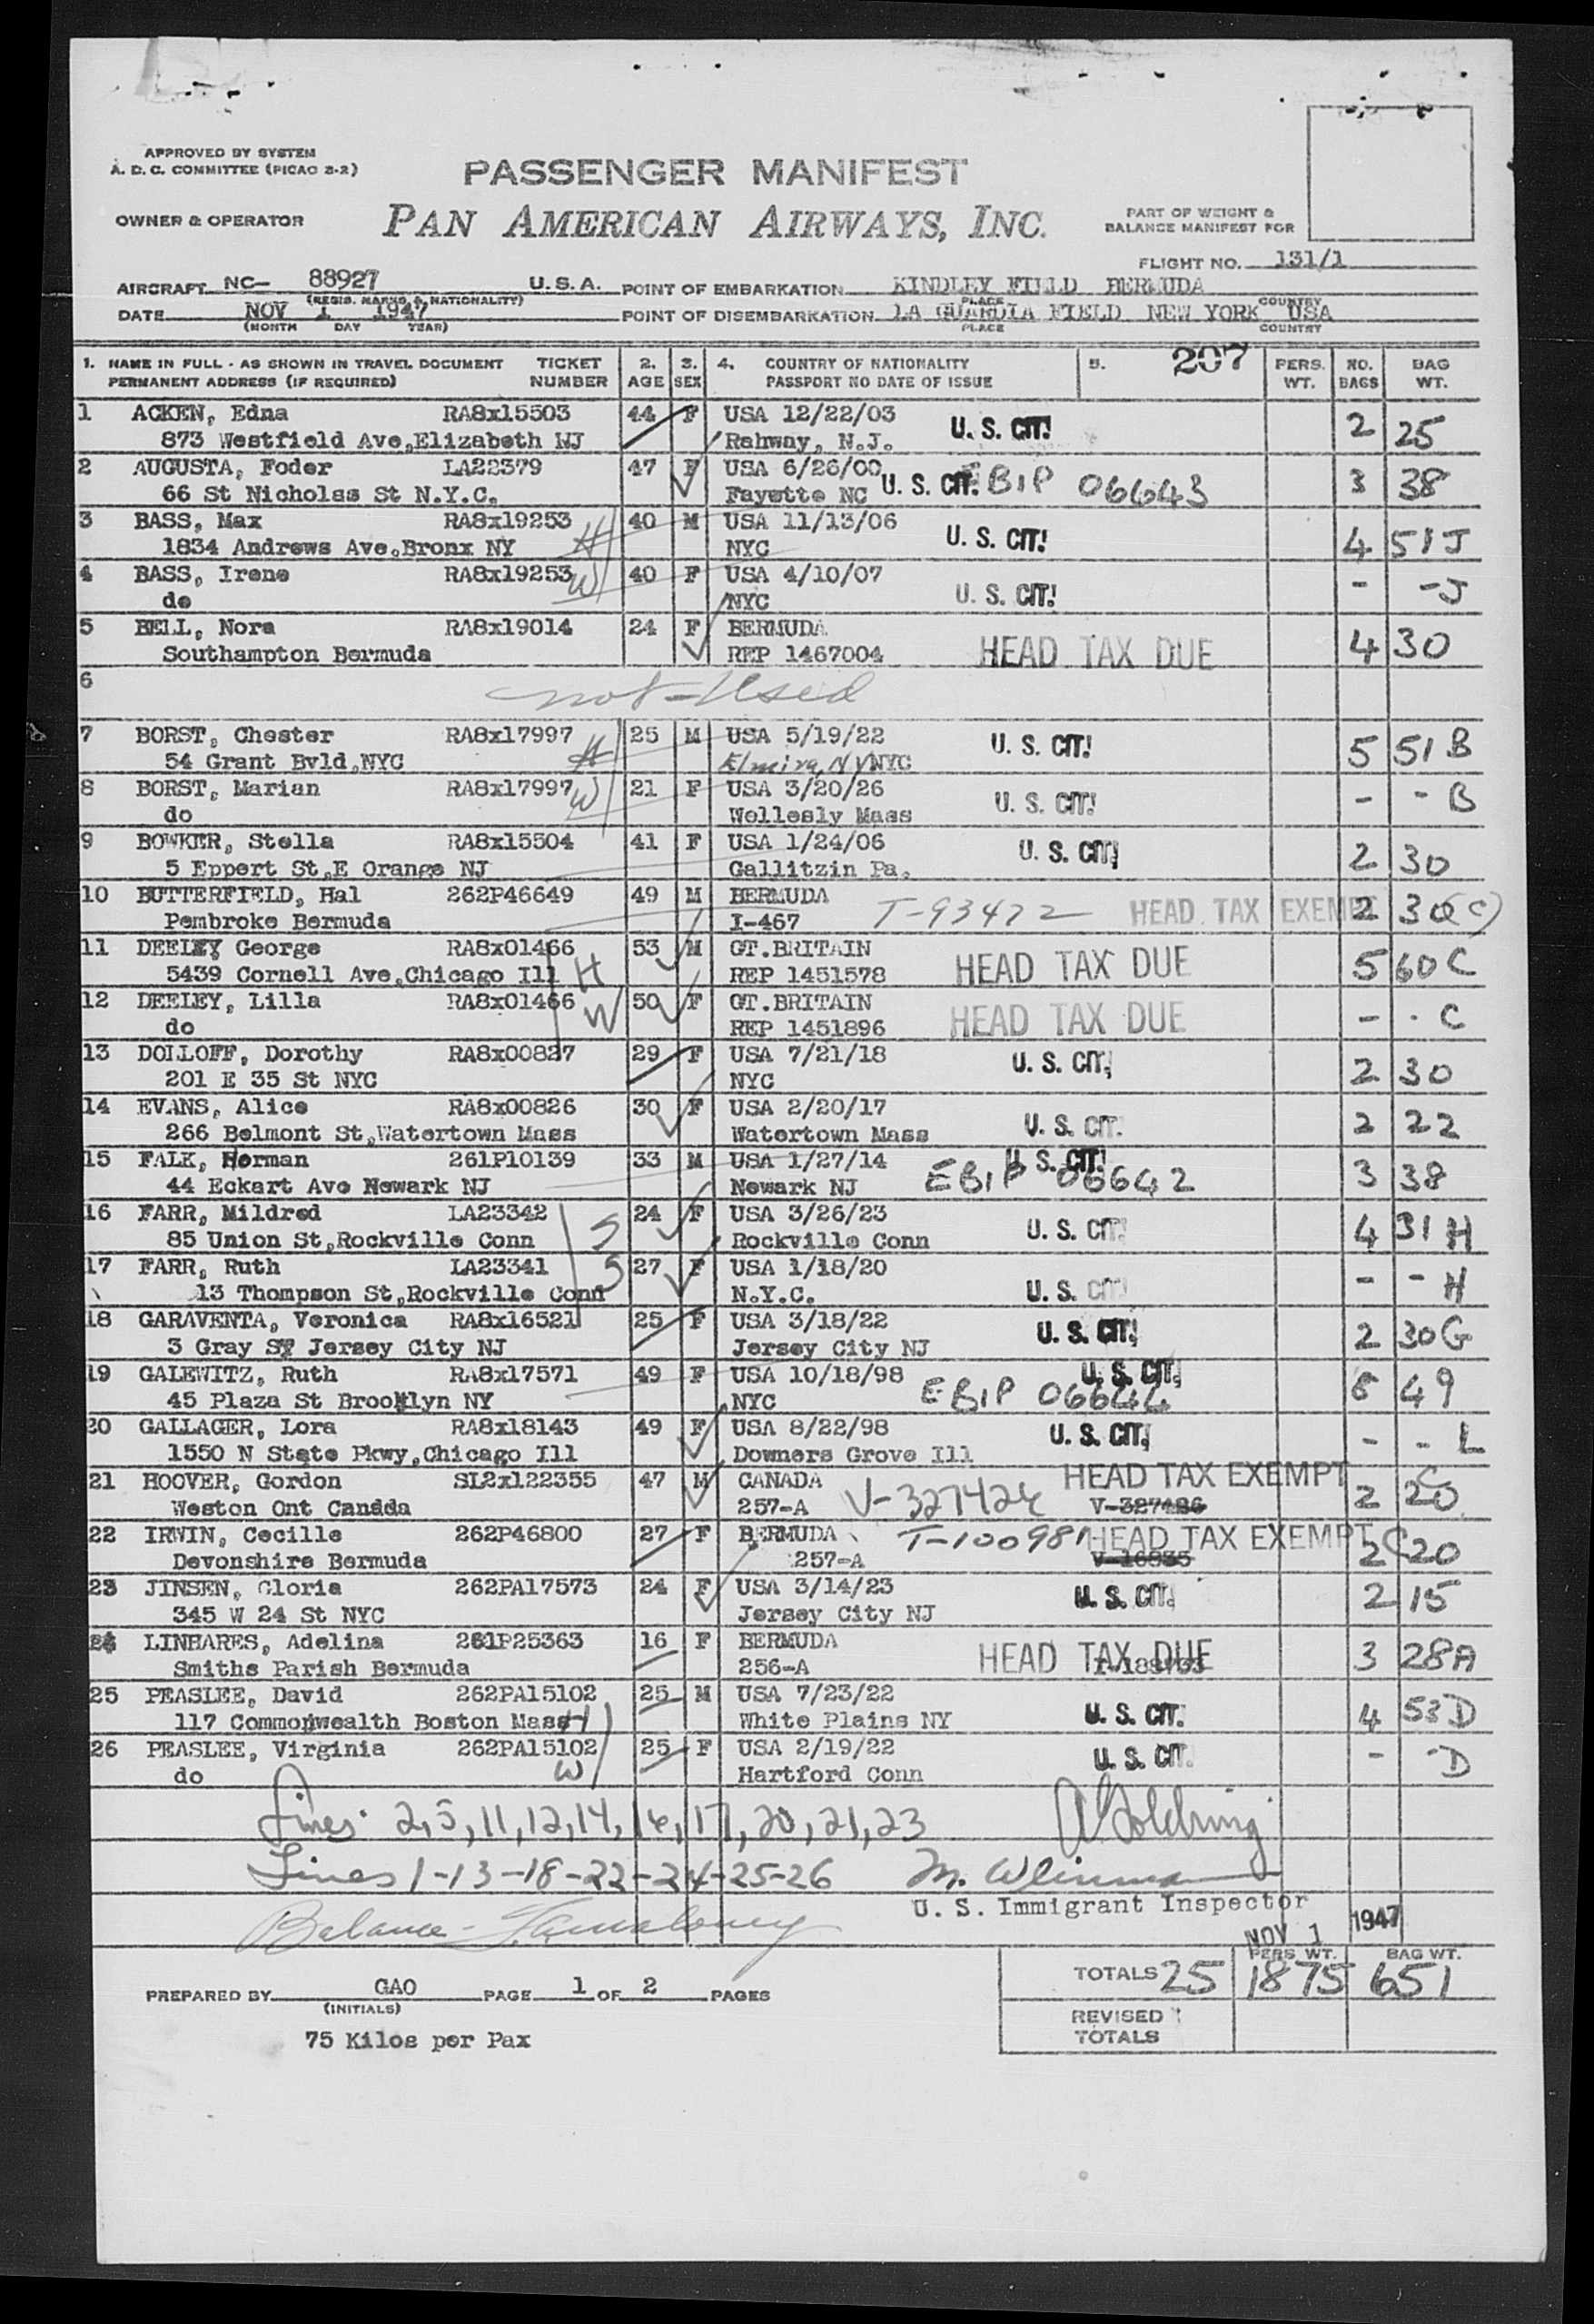 APPROVED BY SYSTEM
A. D. C. COMMITTEE (PICAO 2-2)
PASSENGER MANIFEST
OWNER & OPERATOR PAN AMERICAN AIRWAYS, INC.
PART OF WEIGHT &
BALANCE MANIFEST FOR
FLIGHT NO. 131/1
AIRCRAFT NC- 88927 U. S. A. POINT OF EMBARKATION KINDLEY FIELD BERMUDA
(REGIS. MARKS & NATIONALITY) PLACE COUNTRY
DATE NOV 1 1947 POINT OF DISEMBARKATION LA GUARDIA FIELD NEW YORK USA
(MONTH DAY YEAR) PLACE COUNTRY
1. NAME IN FULL - AS SHOWN IN TRAVEL DOCUMENT TICKET 2. 3. 4. COUNTRY OF NATIONALITY 5. 207 PERS. NO. BAG
PERMANENT ADDRESS (IF REQUIRED) NUMBER AGE SEX PASSPORT NO DATE OF ISSUE WT. BAGS WT.
1 ACKEN, Edna RA8x15503 44 F USA 12/22/03 U. S. CIT! 2 25
873 Westfield Ave,Elizabeth NJ Rahway, N.J.
2 AUGUSTA, Foder LA22379 47 F USA 6/26/00 U. S. CIT. EBIP 06643 3 38
66 St Nicholas St N.Y.C. Fayette NC
3 BASS, Max RA8x19253 H 40 M USA 11/13/06 U. S. CIT! 4 51J
1834 Andrews Ave,Bronx NY NYC
4 BASS, Irene RA8x19253 W 40 F USA 4/10/07 U. S. CIT! - -J
do NYC
5 BELL, Nora RA8x19014 24 F BERMUDA HEAD TAX DUE 4 30
Southampton Bermuda REP 1467004
6 not-Used
7 BORST, Chester RA8x17997 H 25 M USA 5/19/22 U. S. CIT! 5 51 B
54 Grant Bvld,NYC Elmira, NY NYC
8 BORST, Marian RA8x17997 W 21 F USA 3/20/26 U. S. CIT! - - B
do Wellesly Mass
9 BOWKER, Stella RA8x15504 41 F USA 1/24/06 U. S. CIT! 2 30
5 Eppert St,E Orange NJ Gallitzin Pa.
10 BUTTERFIELD, Hal 262P46649 49 M BERMUDA T-93472 HEAD TAX EXEMPT 2 30(C)
Pembroke Bermuda I-467
11 DEELEY George RA8x01466 H 53 M GT.BRITAIN HEAD TAX DUE 5 60 C
5439 Cornell Ave,Chicago Ill REP 1451578
12 DEELEY, Lilla RA8x01466 W 50 F GT.BRITAIN HEAD TAX DUE - - C
do REP 1451896
13 DOLLOFF, Dorothy RA8x00827 29 F USA 7/21/18 U. S. CIT! 2 30
201 E 35 St NYC NYC
14 EVANS, Alice RA8x00826 30 F USA 2/20/17 U. S. CIT. 2 22
266 Belmont St,Watertown Mass Watertown Mass
15 FALK, Herman 261P10139 33 M USA 1/27/14 U. S. CIT! EBIP 06642 3 38
44 Eckart Ave Newark NJ Newark NJ
16 FARR, Mildred LA23342 S 24 F USA 3/26/23 U. S. CIT! 4 31 H
85 Union St,Rockville Conn Rockville Conn
17 FARR, Ruth LA23341 S 27 F USA 1/18/20 U. S. CIT! - - H
13 Thompson St,Rockville Conn N.Y.C.
18 GARAVENTA, Veronica RA8x16521 25 F USA 3/18/22 U. S. CIT! 2 30G
3 Gray ST Jersey City NJ Jersey City NJ
19 GALEWITZ, Ruth RA8x17571 49 F USA 10/18/98 U. S. CIT! EBIP 06644 49
45 Plaza St Brooklyn NY NYC
20 GALLAGER, Lora RA8x18143 49 F USA 8/22/98 U. S. CIT! - - L
1550 N State Pkwy,Chicago Ill Downers Grove Ill
21 HOOVER, Gordon SL2x122355 47 M CANADA V-327426 HEAD TAX EXEMPT 2 20 C
Weston Ont Canada 257-A V-327426
22 IRWIN, Cecille 262P46800 27 F BERMUDA T-100981 HEAD TAX EXEMPT 2 C20
Devonshire Bermuda 257-A V-16835
23 JINSEN, Gloria 262PA17573 24 F USA 3/14/23 U. S. CIT. 2 15
345 W 24 St NYC Jersey City NJ
24 LINHARES, Adelina 261P25363 16 F BERMUDA HEAD TAX DUE 3 28A
Smiths Parish Bermuda 256-A
25 PEASLEE, David 262PA15102 25 M USA 7/23/22 U. S. CIT. 4 53D
117 Commonwealth Boston Mass H White Plains NY
26 PEASLEE, Virginia 262PA15102 W 25 F USA 2/19/22 U. S. CIT. - -D
do Hartford Conn
Lines 2,5,11,12,14,16,17,20,21,23 A Goldring
Lines 1-13-18-22-24-25-26
U. S. Immigrant Inspector
Balance -
NOV 1 1947
PERS WT. BAG WT.
TOTALS 25 1875 651
PREPARED BY GAO PAGE 1 OF 2 PAGES
(INITIALS)
REVISED
TOTALS
75 Kilos per Pax